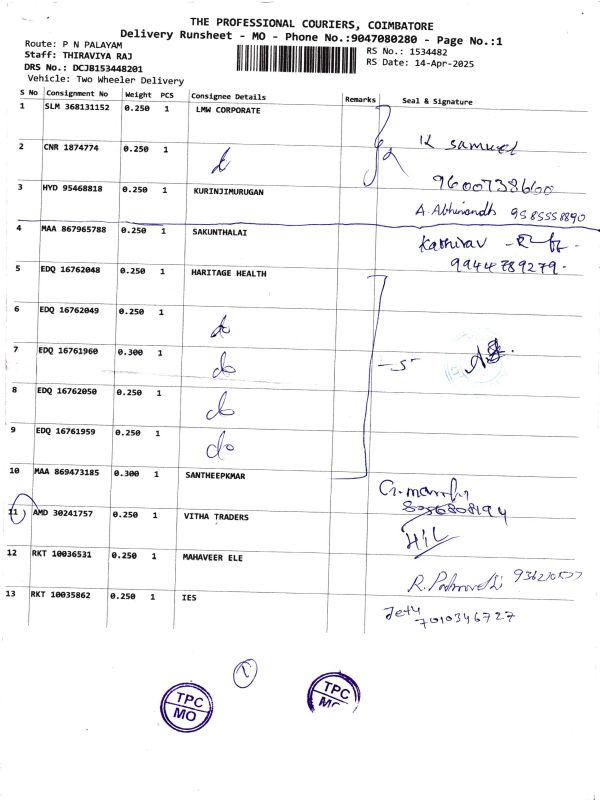 THE PROFESSIONAL COURIERS, COIMBATORE
Delivery Runsheet - MO - Phone No.:9047080280 - Page No.:1
Route: P N PALAYAM
Staff: THIRAVIYA RAJ
DRS No.: DCJB153448201
Vehicle: Two Wheeler Delivery
RS No.: 1534482
RS Date: 14-Apr-2025
S No Consignment No Weight PCS Consignee Details Remarks Seal & Signature
1 SLM 368131152 0.250 1 LMW CORPORATE
2 CNR 1874774 0.250 1 K Samuel
9600738600
3 HYD 95468818 0.250 1 KURINJIMURUGAN A. Abhinandh 9585558890
4 MAA 867965788 0.250 1 SAKUNTHALAI Kathirav
9944789279.
5 EDQ 16762048 0.250 1 HARITAGE HEALTH
6 EDQ 16762049 0.250 1 do
7 EDQ 16761960 0.300 1 do -5-
8 EDQ 16762050 0.250 1 do
9 EDQ 16761959 0.250 1 do
10 MAA 869473185 0.300 1 SANTHEEPKMAR
8056808194
11 AMD 30241757 0.250 1 VITHA TRADERS H/L
12 RKT 10036531 0.250 1 MAHAVEER ELE R.
13 RKT 10035862 0.250 1 IES
7010346727
TPC
MO
TPC
MO